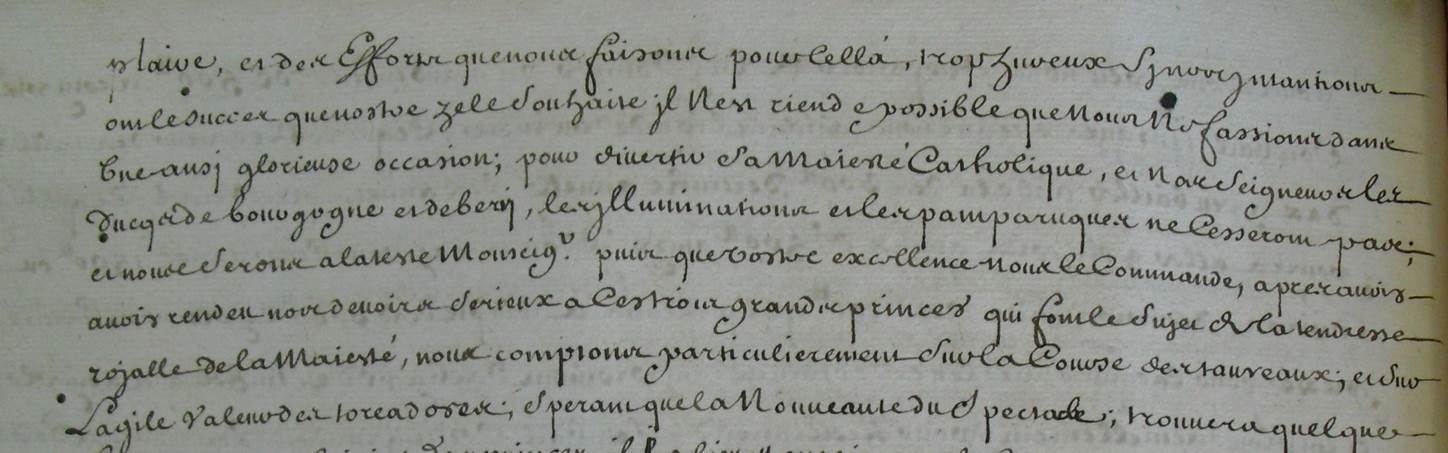 plaire, et des Efforts que nous faisons pour cella, trop hureux Sy nos yntantions
ont le succes que nostre zele Souhaite jl N'est riend e possible que Nous Ne fassions dans
Vne ausy glorieuse occasion; pour divertir Sa Maiesté Catholique, et Nosseigneurs les
Ducqs de bourgogne et de bery, les jlluminations et les pamparuques ne Cesseront pas;
et nous Serons a la teste Monseigr. puis que Vostre excellence nous le Commande, apres avoir
avoir rendeu nos devoirs Serieux a Ces trois grands princes qui font le Sujet de la tendresse
rojalle de la Maiesté, nous comptons particulierement Sur la Course des taureaux; et Sur
L'agile Valeur des toreadores; Sperant que la Nouveauté du Spectacle; trouvera quelque